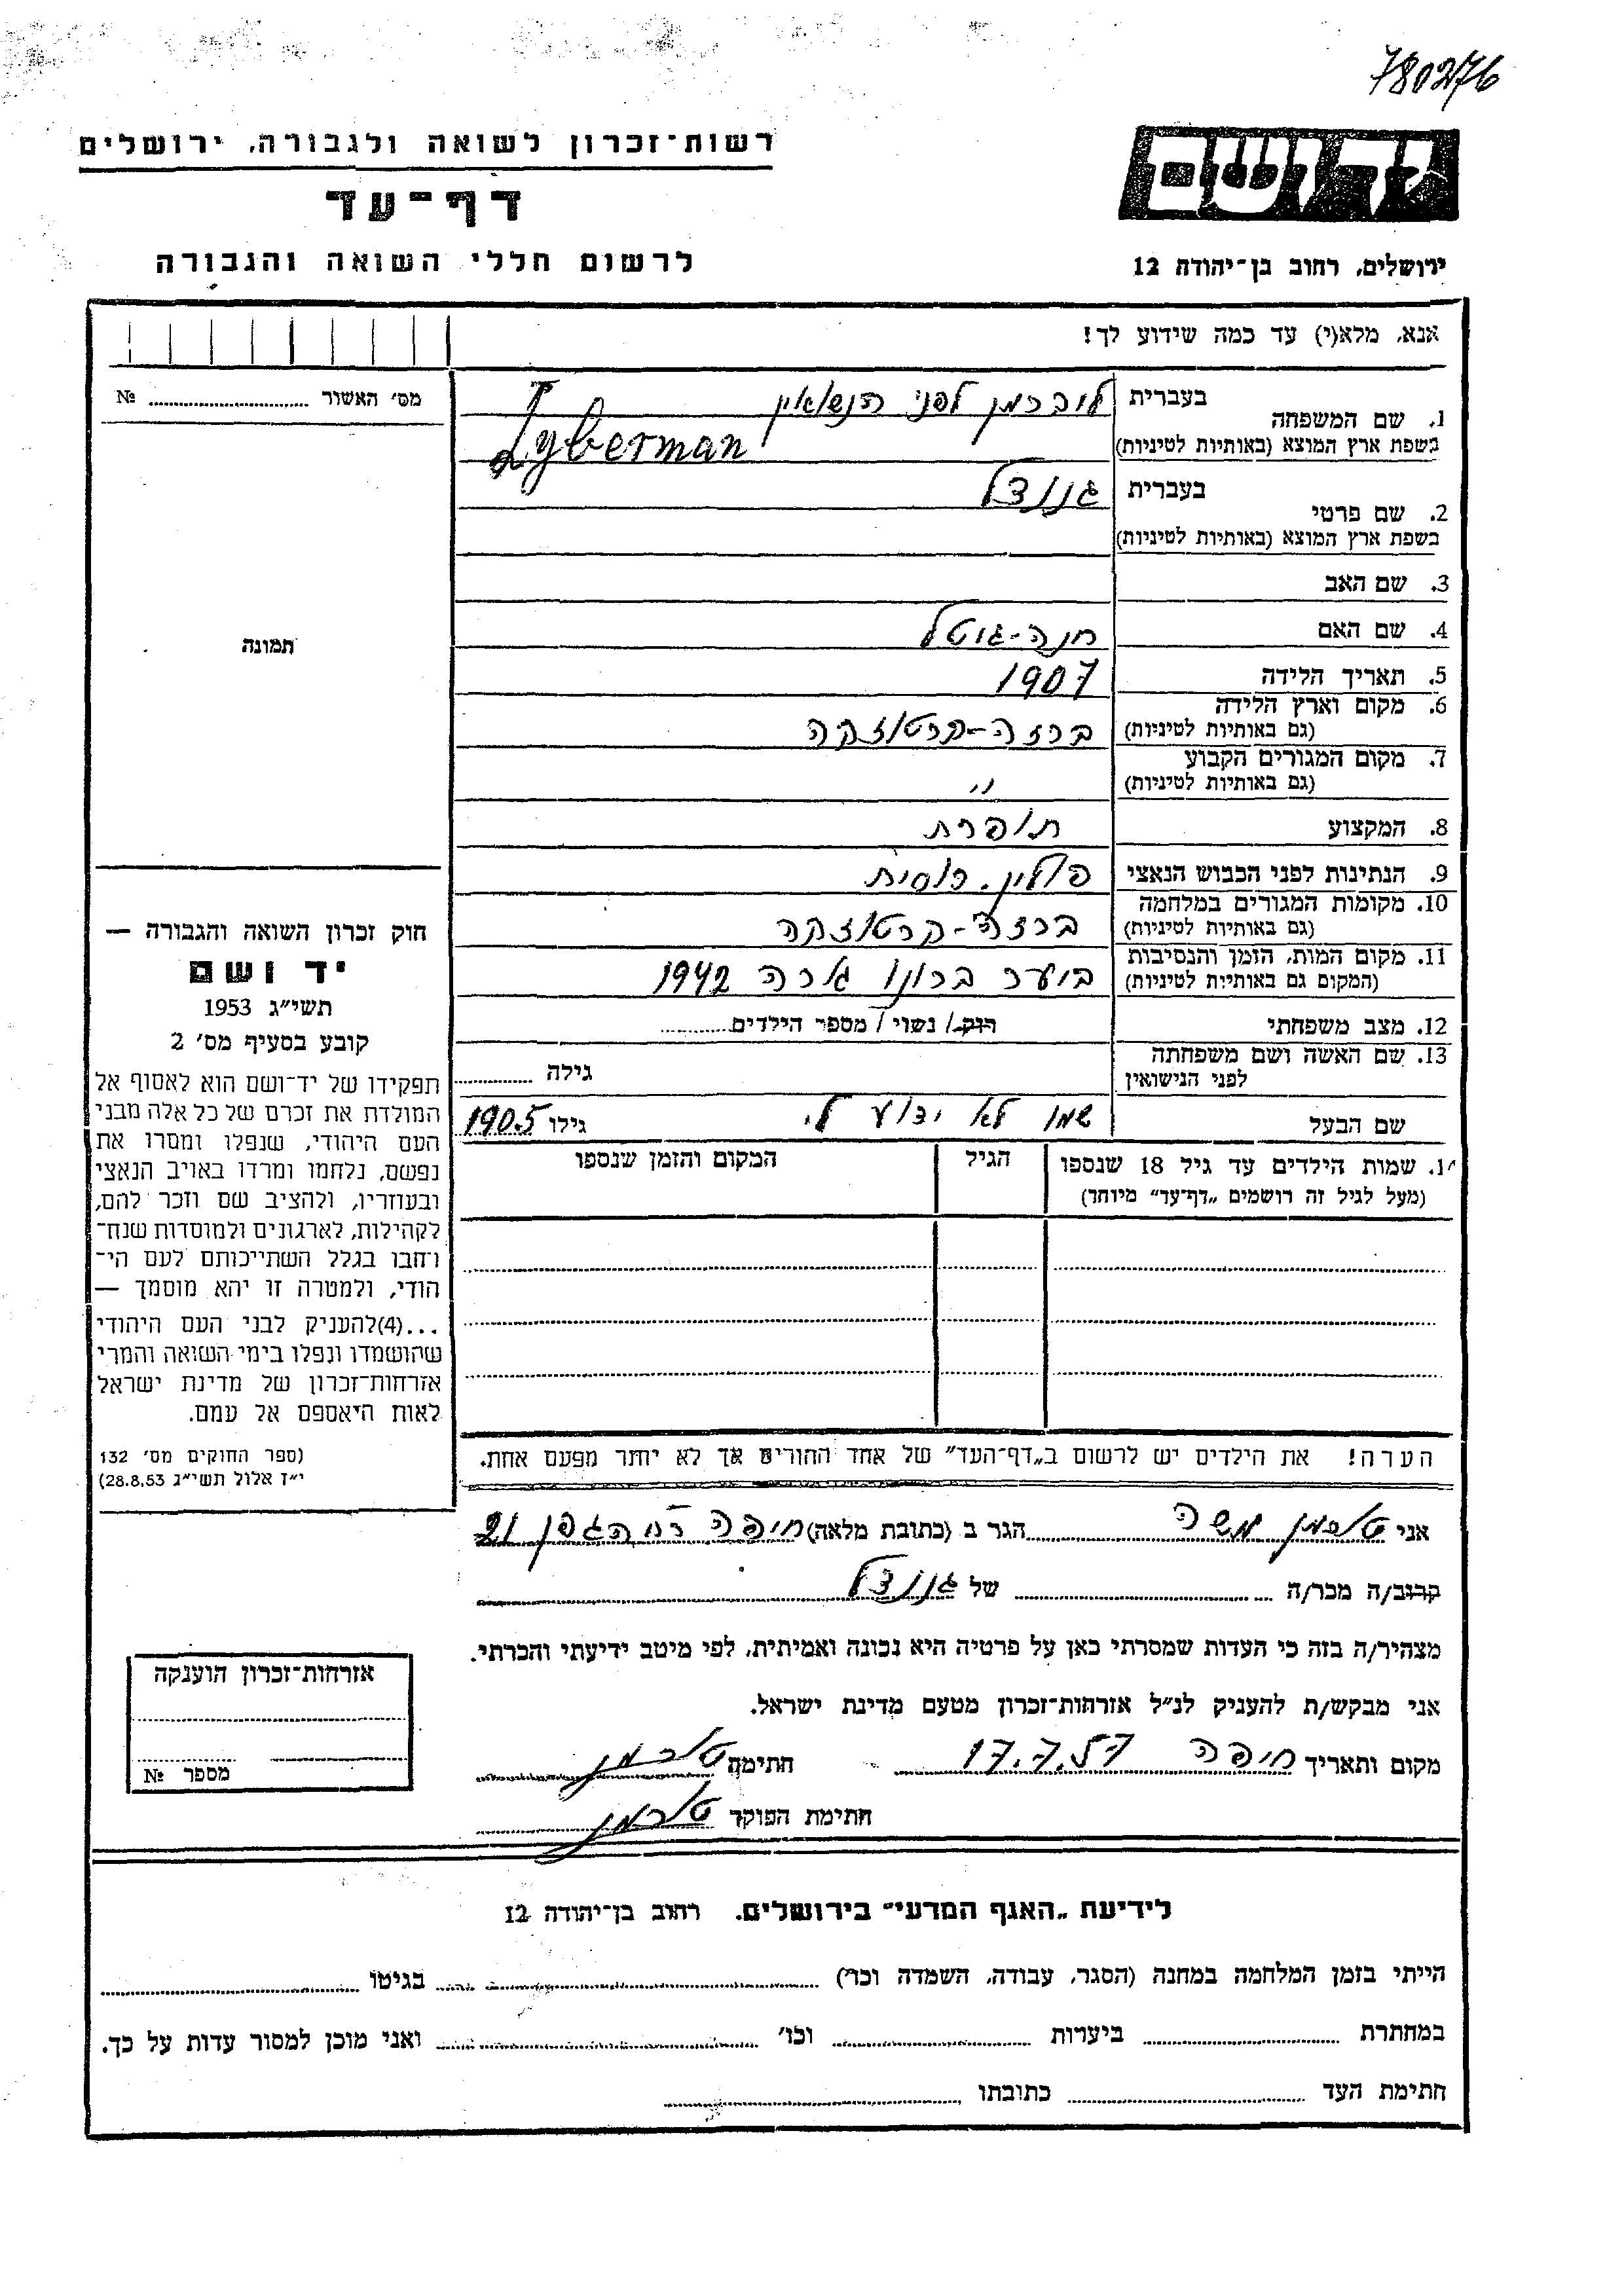 780276
רשות־זכרון לשואה ולגבורה, ירושלים
יד ושם
דף־עד
ירושלים, רחוב בן־יהודה 12
לרשום חללי השואה והגבורה
אנא, מלא(י) עד כמה שידוע לך!
מס׳ האשור № 
1. שם המשפחה
בעברית ליברמן לפני הנשואין
בשפת ארץ המוצא (באותיות לטיניות) Lyberman
2. שם פרטי
בעברית
בשפת ארץ המוצא (באותיות לטיניות)
3. שם האב
4. שם האם חנה-גוטל
תמונה
5. תאריך הלידה 1907
6. מקום וארץ הלידה
(גם באותיות לטיניות) ברזה-קרטוזקה
7. מקום המגורים הקבוע
(גם באותיות לטיניות) ״
8. המקצוע תופרת
9. הנתינות לפני הכבוש הנאצי פולין. רוסית
10. מקומות המגורים במלחמה
(גם באותיות לטיניות) ברזה-קרטוזקה
11. מקום המות, הזמן והנסיבות
(המקום גם באותיות לטיניות) ביער ברונו גורה 1942
12. מצב משפחתי רוק/ נשוי / מספר הילדים
13. שם האשה ושם משפחתה
לפני הנישואין גילה
שם הבעל שמו לא ידוע לי. גילו 1905
1. שמות הילדים עד גיל 18 שנספו
(מעל לגיל זה רושמים „דף־עד״ מיוחד)
הגיל
המקום והזמן שנספו
חוק זכרון השואה והגבורה —
יד ושם
תשי״ג 1953
קובע בסעיף מס׳ 2
תפקידו של יד־ושם הוא לאסוף אל
המולדת את זכרם של כל אלה מבני
העם היהודי, שנפלו ומסרו את
נפשם, נלחמו ומרדו באויב הנאצי
ובעוזריו, ולהציב שם וזכר להם,
לקהילות, לארגונים ולמוסדות שנח־
רבו בגלל השתייכותם לעם הי־
הודי, ולמטרה זו יהא מוסמך —
...(4)להעניק לבני העם היהודי
שהושמדו ונפלו בימי השואה והמרי
אזרחות־זכרון של מדינת ישראל
לאות היאספם אל עמם.
(ספר החוקים מס׳ 132
י״ז אלול תשי״ג 28.8.53)
הערה! את הילדים יש לרשום ב„דף־העד״ של אחד החורים אך לא יותר מפעם אחת.
אני טוכמן משה הגר ב (כתובת מלאה) חיפה רח הגפן 21
קרוב/ה מכר/ה של
מצהיר/ה בזה כי העדות שמסרתי כאן על פרטיה היא נכונה ואמיתית, לפי מיטב ידיעתי והכרתי.
אני מבקש/ת להעניק לנ״ל אזרחות־זכרון מטעם מדינת ישראל.
מקום ותאריך חיפה 17.7.57 חתימה טוכמן
חתימת הפוקד טוכמן
אזרחות־זכרון הוענקה
מספר №
לידיעת „האגף המדעי״ בירושלים. רחוב בן־יהודה 12
הייתי בזמן המלחמה במחנה (הסגר, עבודה, השמדה וכד׳) בגיטו
במחתרת ביערות וכו׳ ואני מוכן למסור עדות על כך.
חתימת העד כתובתו